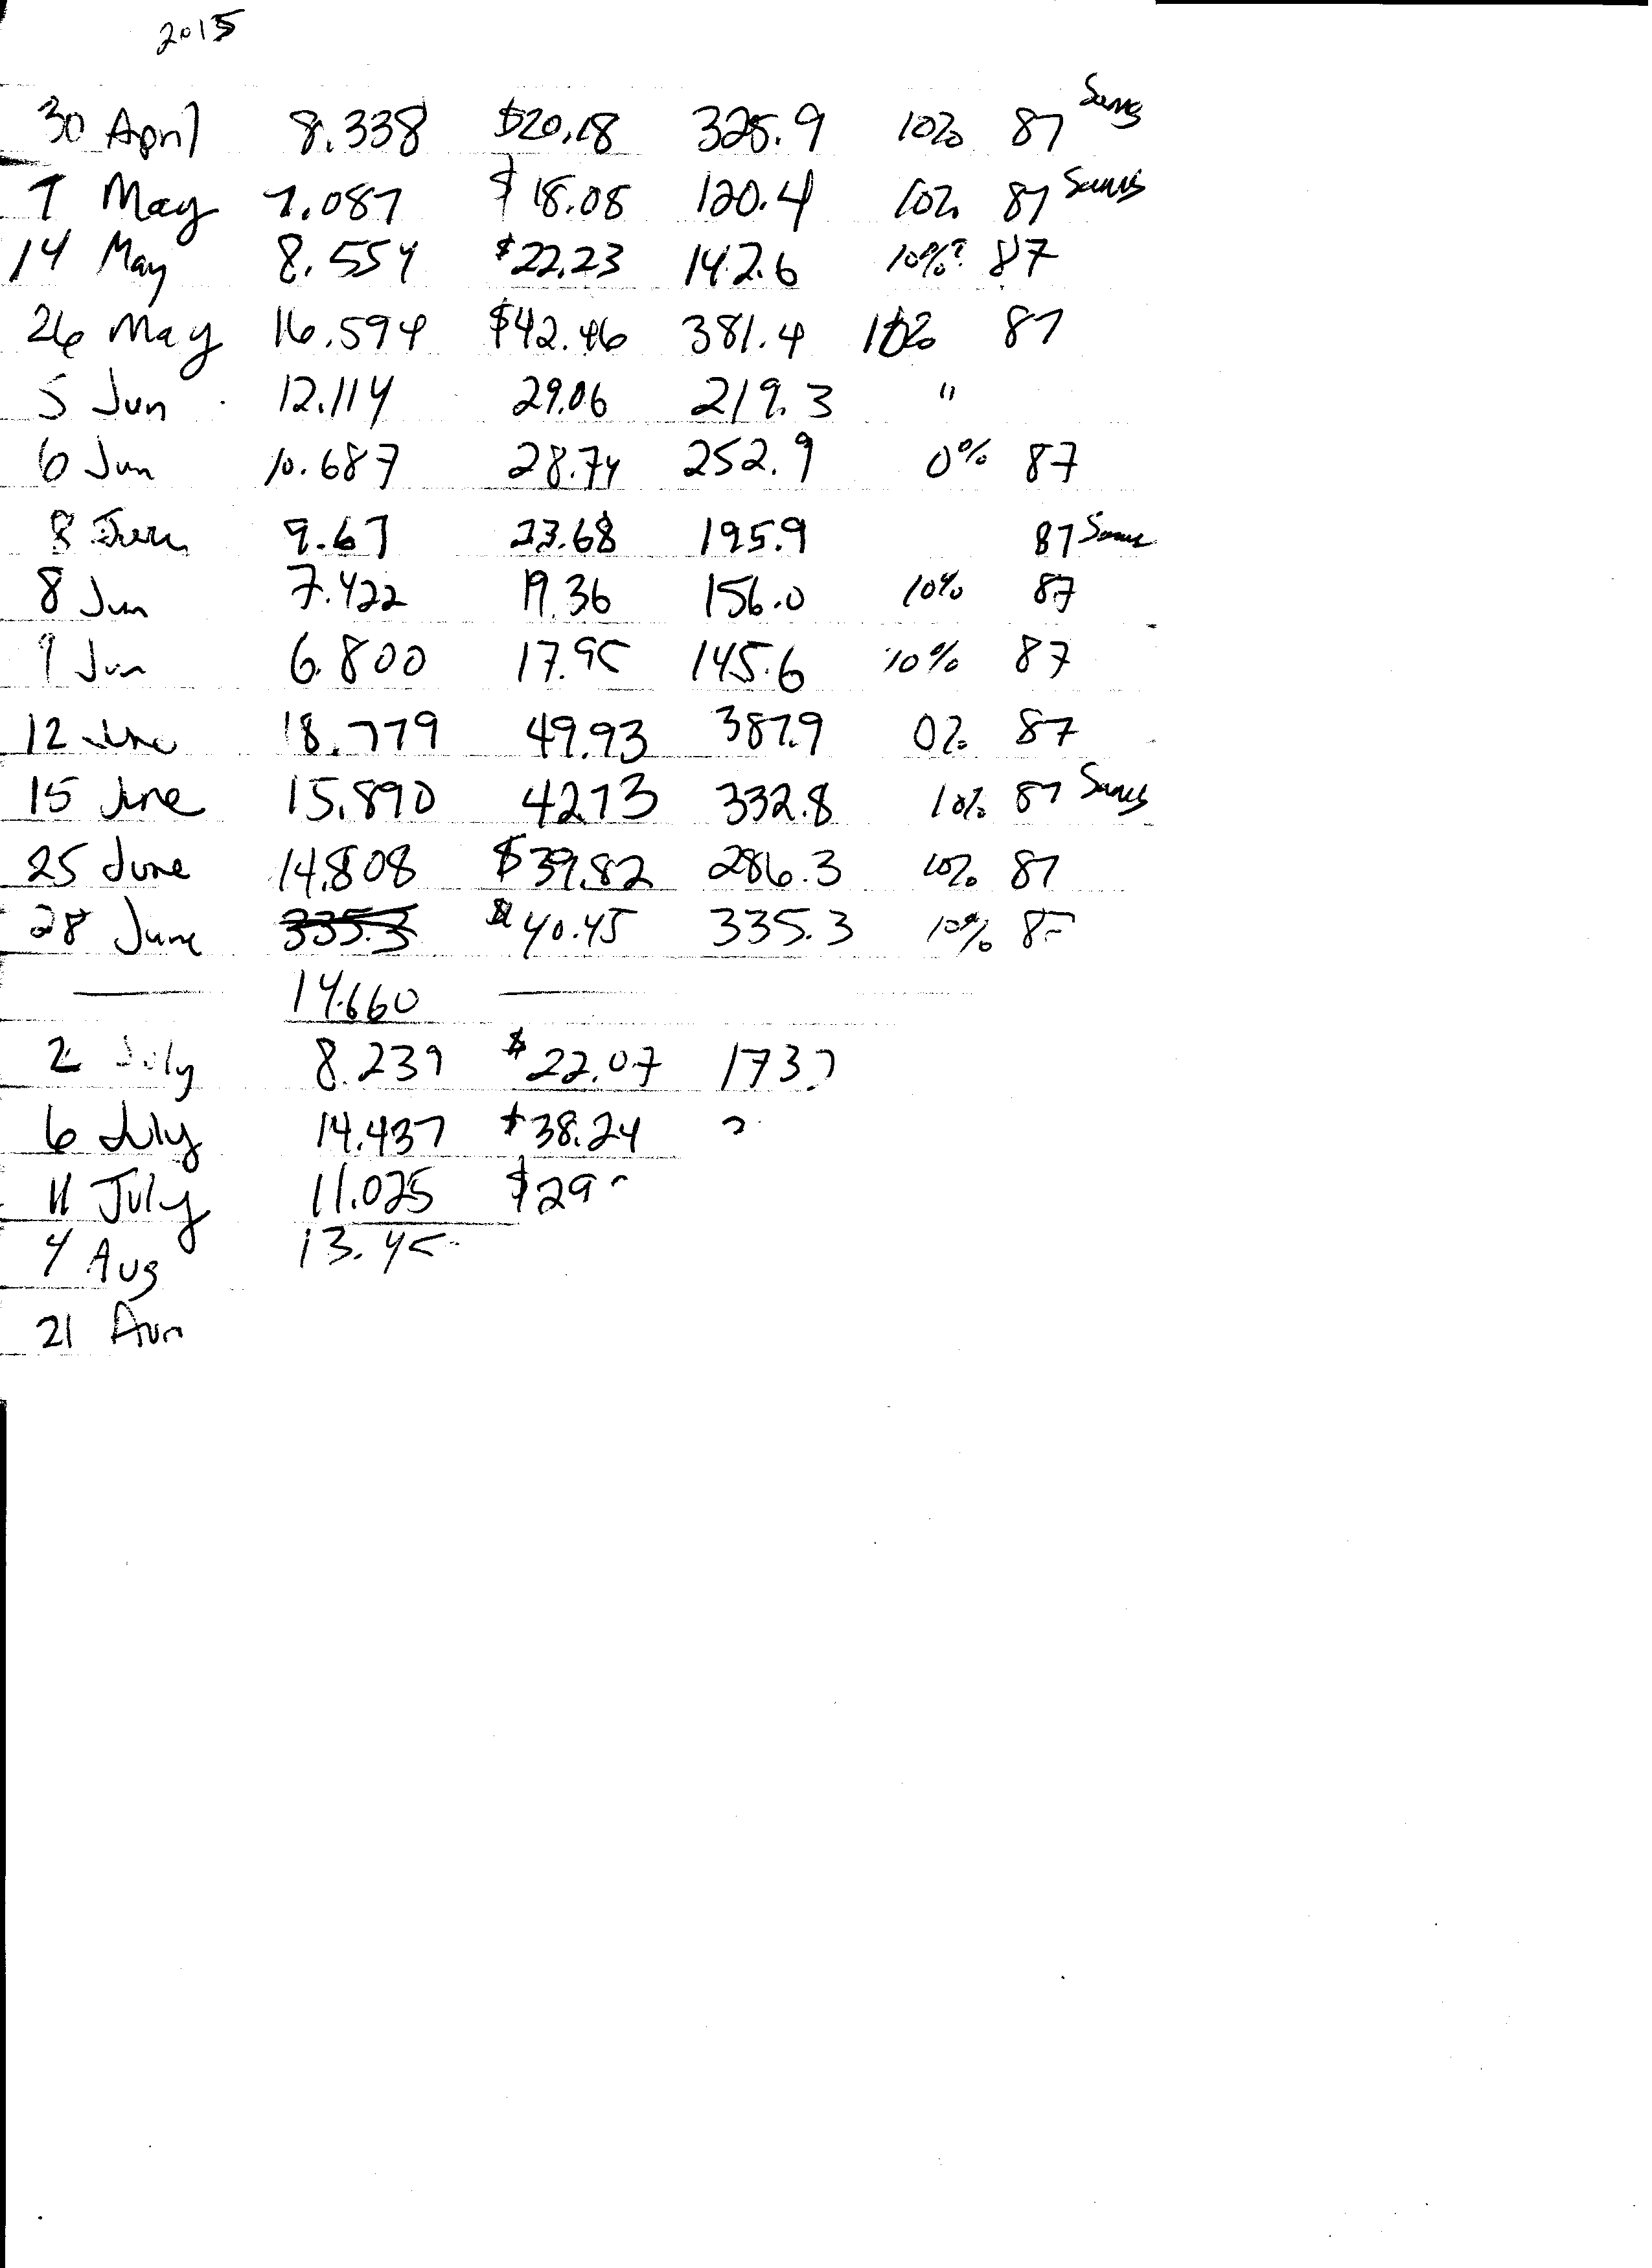 2015
30 April 8.338 $20.18 325.9 10% 87 Sams
7 May 7.087 $18.08 120.4 10% 87 Sams
14 May 8.554 $22.23 142.6 10%? 87
26 May 16.594 $42.46 381.4 10% 87
5 Jun 12.114 29.06 219.3 "
6 Jun 10.687 28.74 252.9 0% 87
8 Jun 9.67 23.68 195.9 87 Sams
8 Jun 7.422 19.36 156.0 10% 87
9 Jun 6.800 17.95 145.6 10% 87
12 June 18.779 49.93 387.9 0% 87
15 June 15.890 42.73 332.8 10% 87 Sams
25 June 14.808 $39.82 286.3 10% 87
28 June 335.3 $40.45 335.3 10%
14.660
2 July 8.239 $22.07
6 July 14.437 $38.24 ?
11 July 11.025 $29
4 Aug 13.45
21